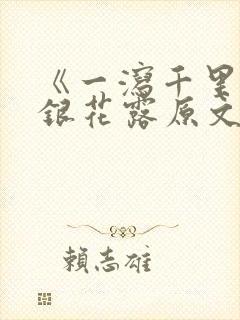 《一瀉千里
銀花露原文
賴志雄